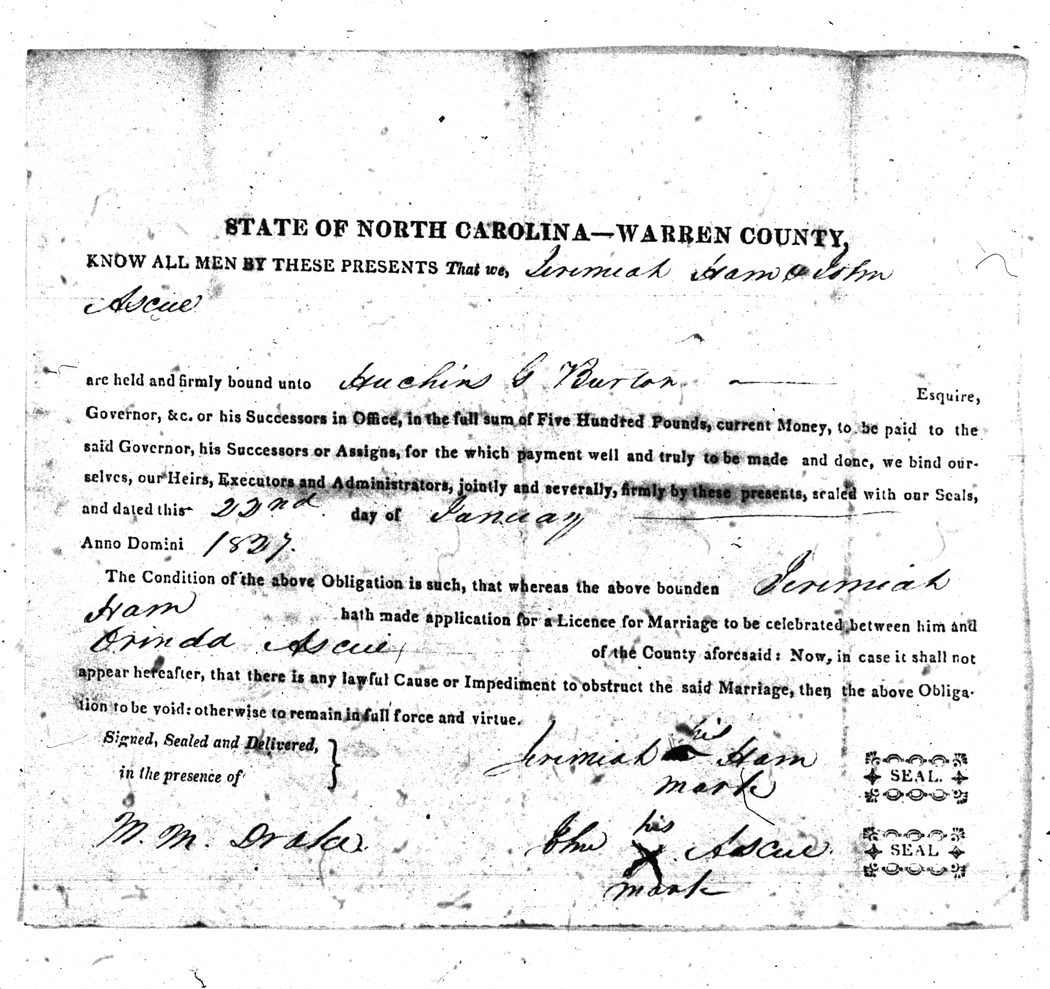 STATE OF NORTH CAROLINA—WARREN COUNTY,
KNOW ALL MEN BY THESE PRESENTS That we, Jeremiah Ham & John
Ascue
are held and firmly bound unto Huchins G Burton — Esquire,
Governor, &c. or his Successors in Office, in the full sum of Five Hundred Pounds, current Money, to be paid to the
said Governor, his Successors or Assigns, for the which payment well and truly to be made and done, we bind our-
selves, our Heirs, Executors and Administrators, jointly and severally, firmly by these presents, sealed with our Seals,
and dated this 22nd. day of January
Anno Domini 1827.
The Condition of the above Obligation is such, that whereas the above bounden Jeremiah
Ham hath made application for a Licence for Marriage to be celebrated between him and
Orinda Ascue of the County aforesaid: Now, in case it shall not
appear hereafter, that there is any lawful Cause or Impediment to obstruct the said Marriage, then the above Obliga-
tion to be void: otherwise to remain in full force and virtue.
Signed, Sealed and Delivered,
in the presence of
his
Jeremiah Ham SEAL.
mark
M. M. Drake.
his
John X Ascue. SEAL
mark